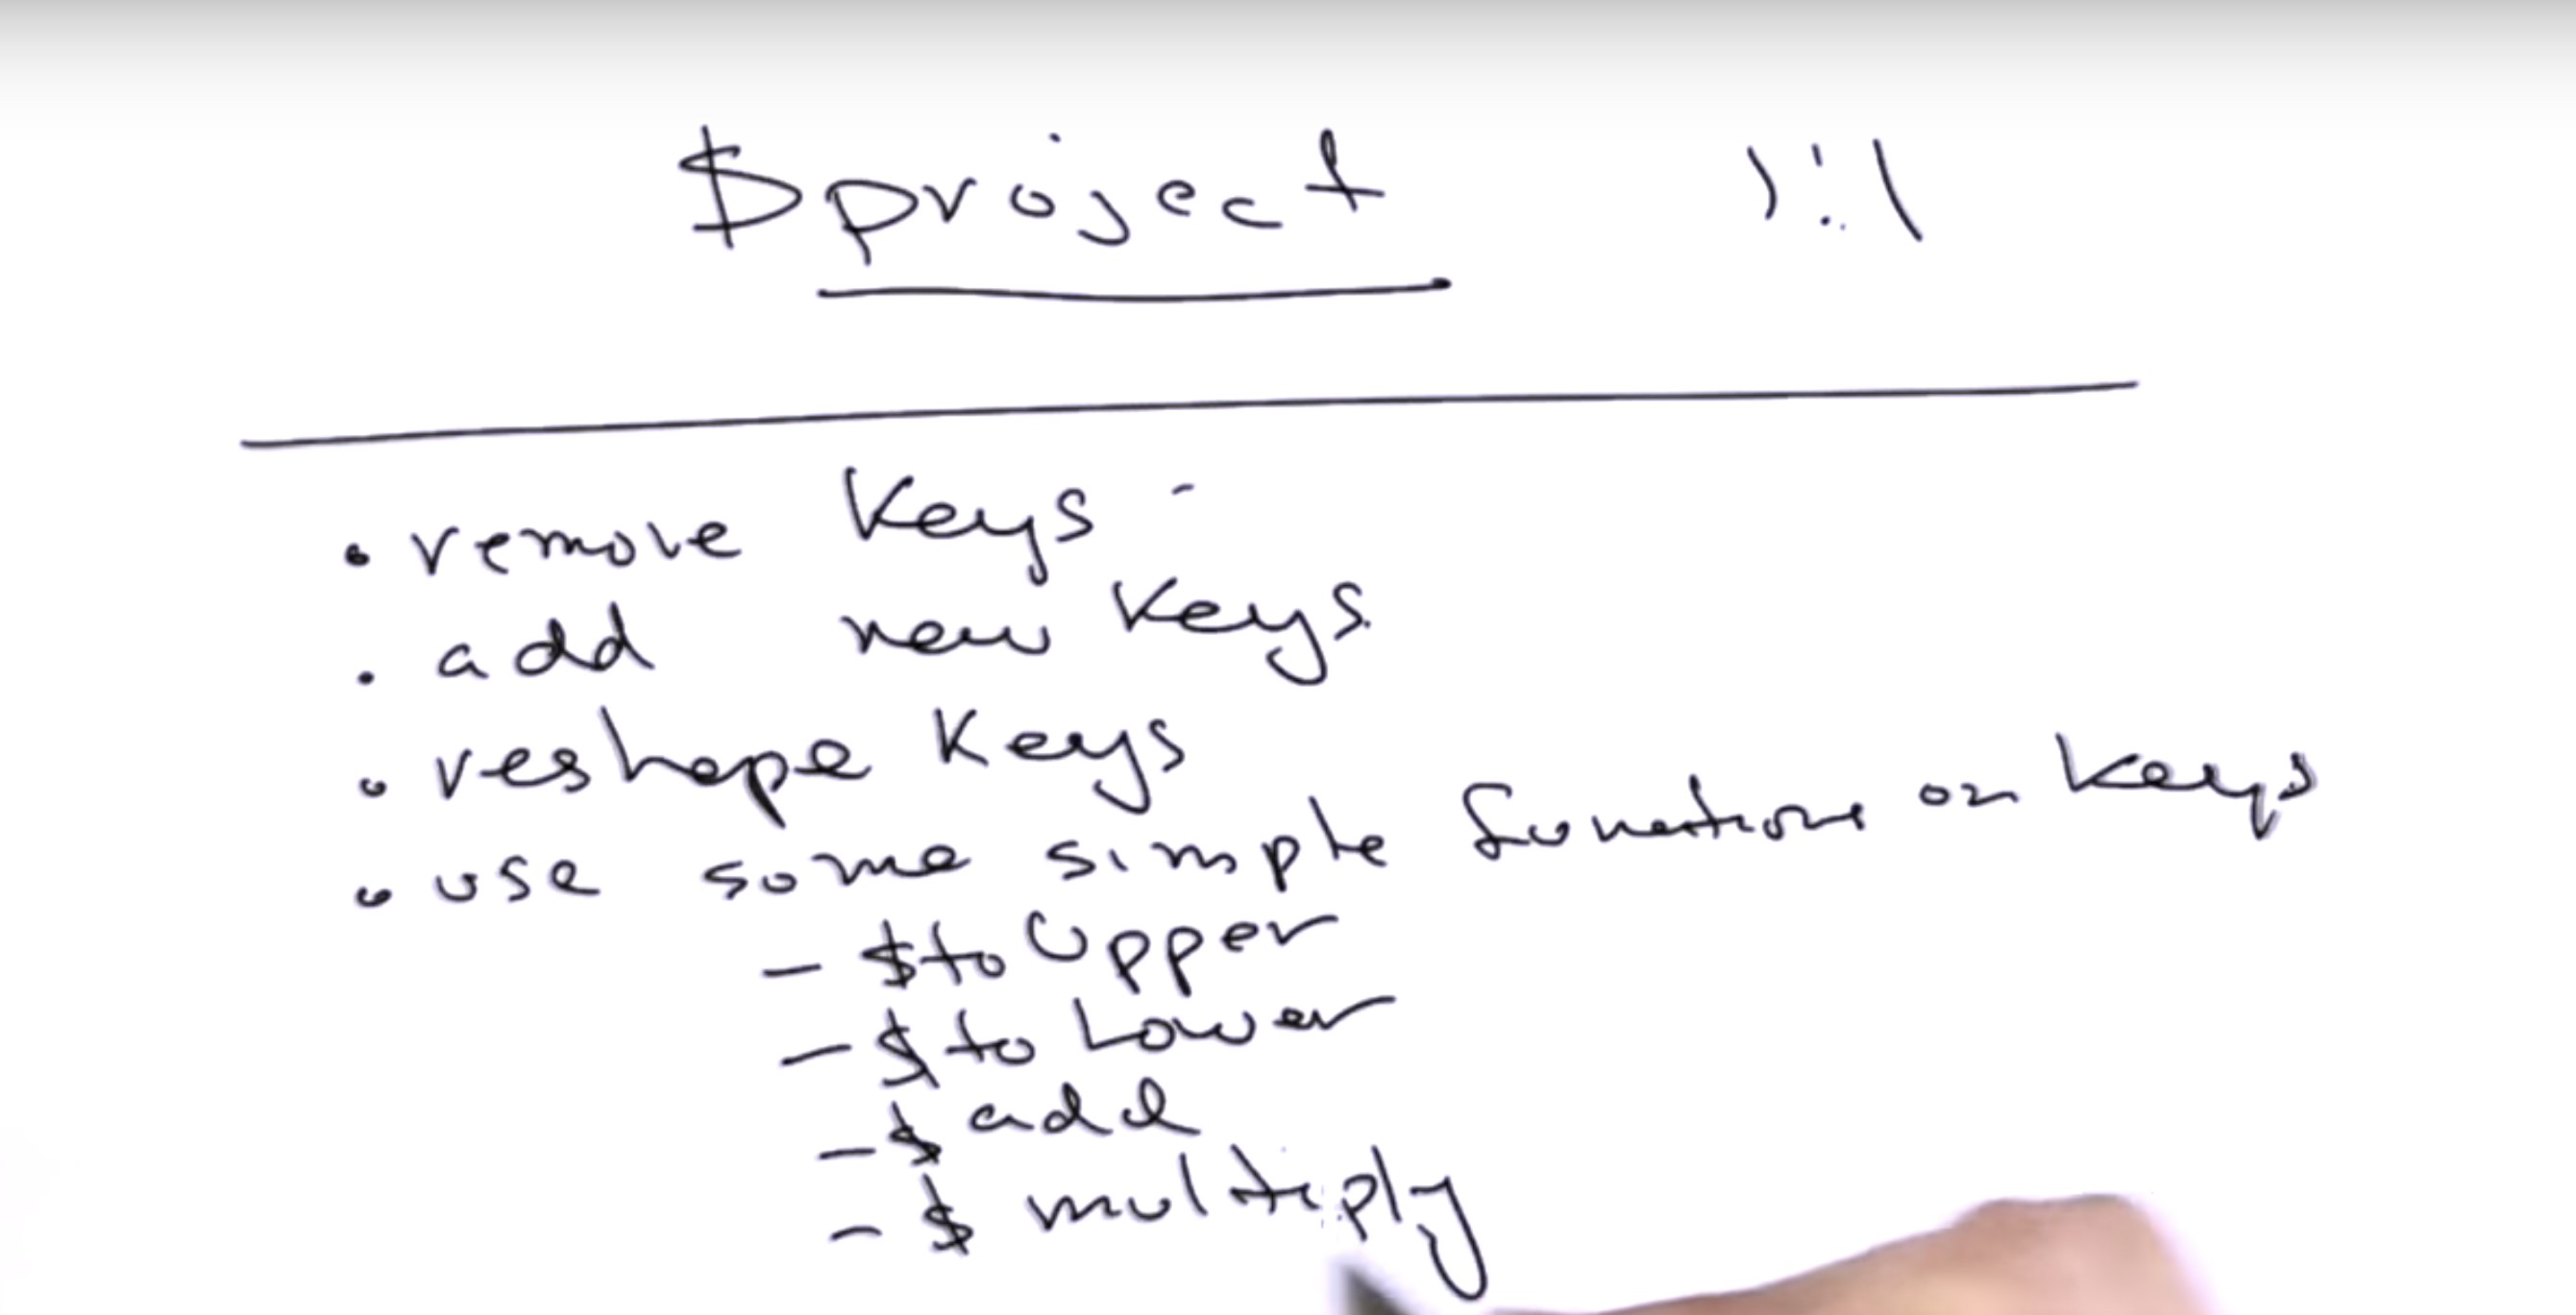 $project 1:1
• remove keys -
• add new keys.
• reshape keys
• use some simple functions on keys
- $toUpper
- $toLower
- $add
- $multiply